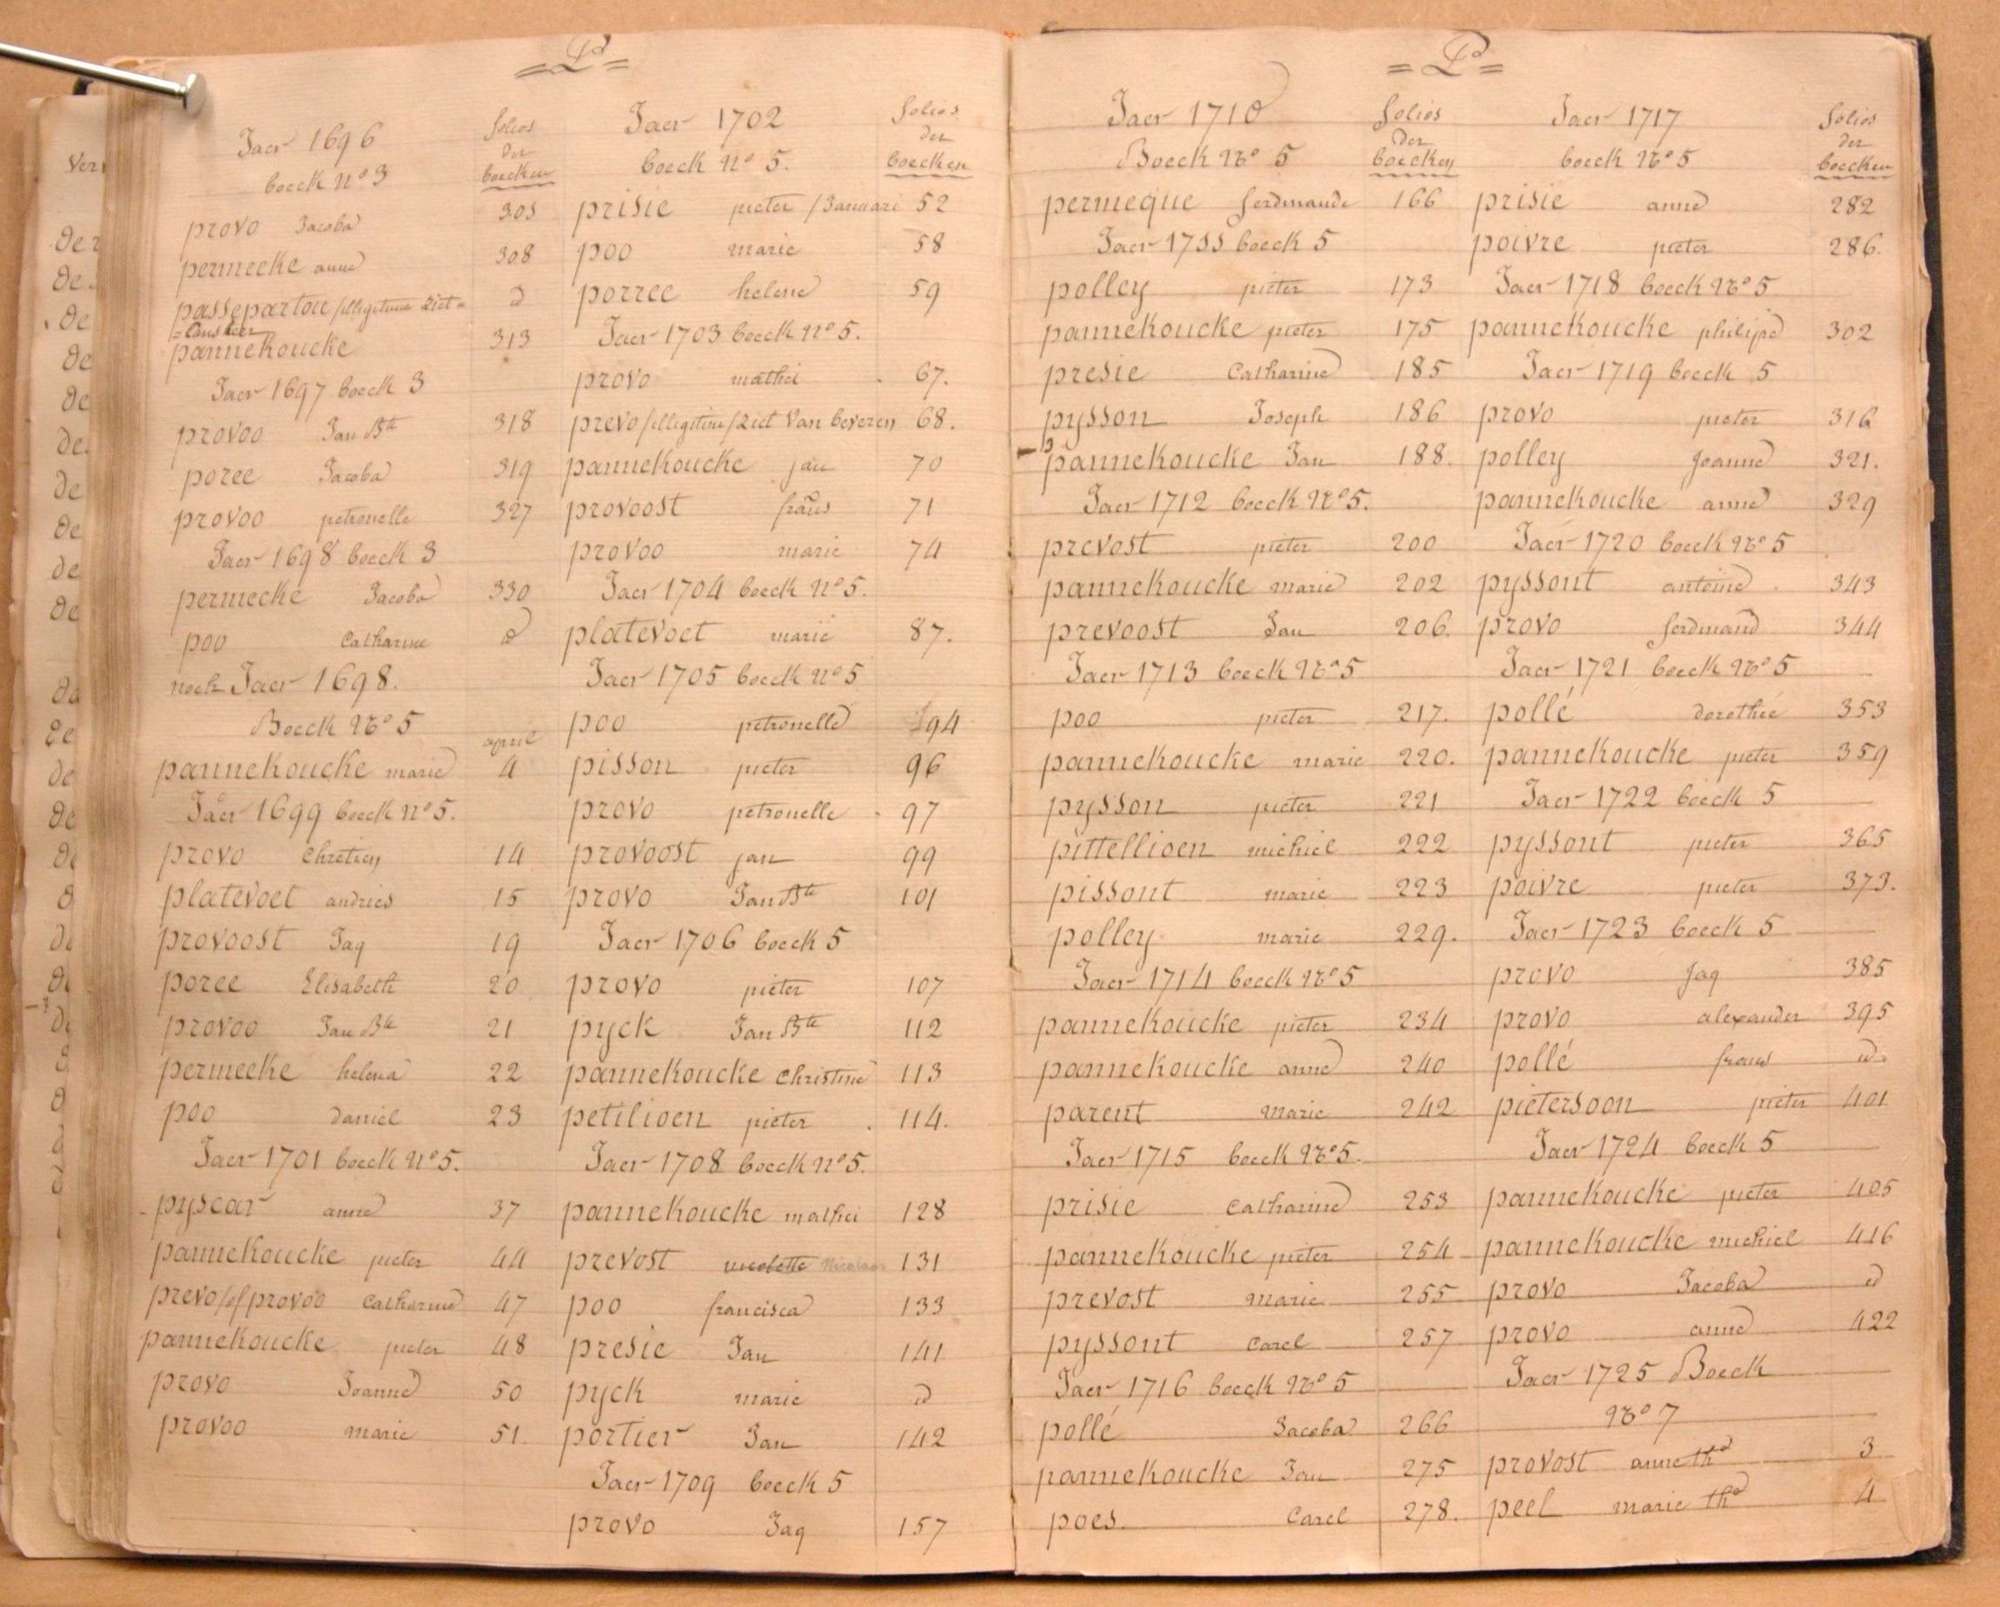 = P =
Jaer 1696
boeck nº 3
folios
der
boecken
provo Jacoba 305
permecke anne 308
passepartou /illegitime ziet = d
= Causlier
pannekoucke 313
Jaer 1697 boeck 3
provoo Jan Bte 318
poree Jacoba 319
provoo petronelle 327
Jaer 1698 boeck 3
permecke Jacoba 330
poo Catharine d
noch Jaer 1698.
Boeck Nº 5
april
pannekoucke marie 4
Jaer 1699 boeck nº 5.
provo Chretien 14
platevoet andries 15
provoost Jaq 19
poree Elisabeth 20
provoo Jan Bte 21
permecke helena 22
poo daniel 23
Jaer 1701 boeck nº 5.
pyscar anne 37
pannekoucke pieter 44
prevo /of provoo Catharine 47
pannekoucke pieter 48
provo Joanne 50
provoo marie 51
Jaer 1702
boeck nº 5.
folios
der
boecken
prisie pieter /Januari 52
poo marie 58
porree helene 59
Jaer 1703 boeck nº 5.
provo mathei 67.
prevo /illegitime/ ziet van beveren 68.
pannekoucke jan 70
provoost frans 71
provoo marie 74
Jaer 1704 boeck nº 5.
platevoet marie 87.
Jaer 1705 boeck nº 5
poo petronelle 94
pisson pieter 96
provo petronelle 97
provoost jan 99
provo Jan Bte 101
Jaer 1706 boeck 5
provo pieter 107
pyck Jan Bte 112
pannekoucke Christine 113
petilioen pieter 114.
Jaer 1708 boeck nº 5.
pannekoucke mathei 128
prevost nicolette Nicolaas 131
poo francisca 133
presie Jan 141
pyck marie d
portier Jan 142
Jaer 1709 boeck 5
provo Jaq 157
= P =
Jaer 1710
Boeck Nº 5
folios
der
boecken
permeque ferdinande 166
Jaer 1711 boeck 5
polley pieter 173
pannekoucke pieter 175
presie Catharine 185
pysson Joseph 186
pannekoucke Jan 188.
Jaer 1712 boeck Nº 5.
prevost pieter 200
pannekoucke marie 202
prevoost Jan 206.
Jaer 1713 boeck Nº 5
poo pieter 217.
pannekoucke marie 220.
pysson pieter 221
pittellioen michiel 222
pissont marie 223
polley marie 229.
Jaer 1714 boeck Nº 5
pannekoucke pieter 234
pannekoucke anne 240
parent marie 242
Jaer 1715 boeck Nº 5.
prisie Catharine 253
pannekoucke pieter 254
prevost marie 255
pyssont Carel 257
Jaer 1716 boeck Nº 5
pollé Jacoba 266
pannekoucke Jan 275
poes. Carel 278.
Jaer 1717
boeck Nº 5
folios
der
boecken
prisie anne 282
poivre pieter 286.
Jaer 1718 boeck Nº 5
pannekoucke philipe 302
Jaer 1719 boeck 5
provo pieter 316
polley Joanne 321.
pannekoucke anne 329
Jaer 1720 boeck Nº 5
pyssont antoine 343
provo ferdinand 344
Jaer 1721 boeck Nº 5
pollé dorothée 353
pannekoucke pieter 359
Jaer 1722 boeck 5
pyssont pieter 365
poivre pieter 373.
Jaer 1723 boeck 5
provo Jaq 385
provo alexander 395
pollé frans d
pietersoon pieter 401
Jaer 1724 boeck 5
pannekoucke pieter 405
pannekoucke michiel 416
provo Jacoba d
provo anne 422
Jaer 1725 Boeck
Nº 7
provost anne the 3
peel marie the 4